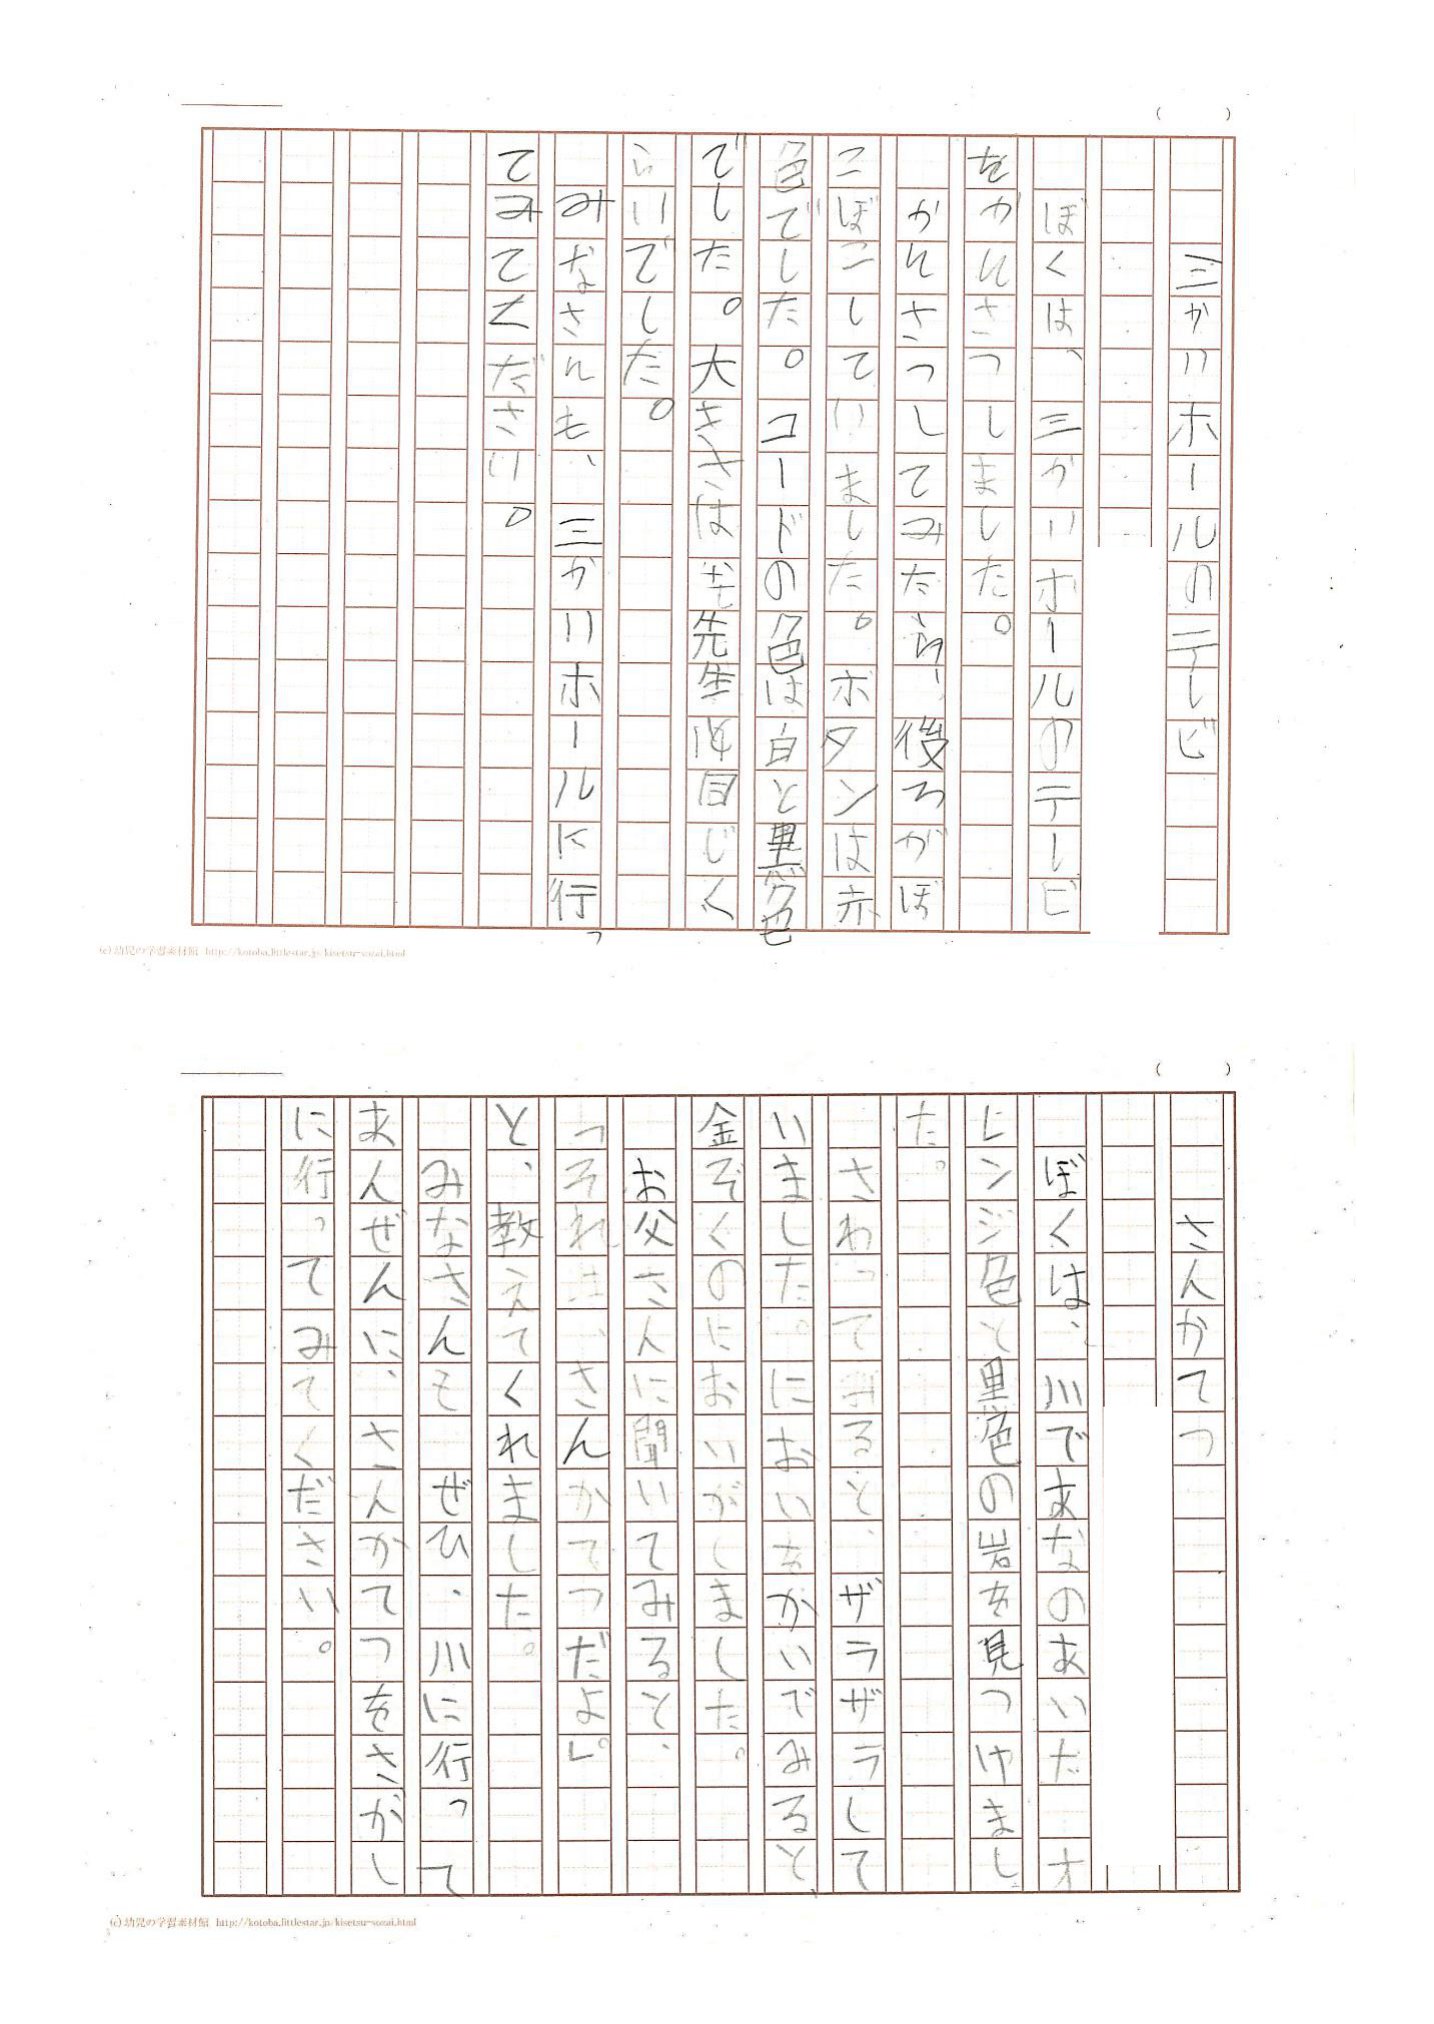 三かいホールのテレビ
ぼくは、三かいホールのテレビ
をかんさつしました。
かんさつしてみたら、後ろがぼ
こぼこしていました。ボタンは赤
色でした。コードの色は白と黒色
でした。大きさは先生と同じく
らいでした。
みなさんも、三かいホールに行っ
てみてください。
(c) 幼児の学習素材館 http://kotoba.littlestar.jp/kisetsu-sozai.html
さんかてつ
ぼくは、川であなのあいた オ
レンジ色と黒色の岩を見つけまし
た。
さわってみると、ザラザラして
いました。においをかいでみると、
金ぞくのにおいがしました。
お父さんに聞いてみると、
「それは、さんかてつだよ」。
と、教えてくれました。
みなさんも ぜひ、川に行って
まんぜんに、さんかてつをさがし
に行ってみてください。
(c) 幼児の学習素材館 http://kotoba.littlestar.jp/kisetsu-sozai.html